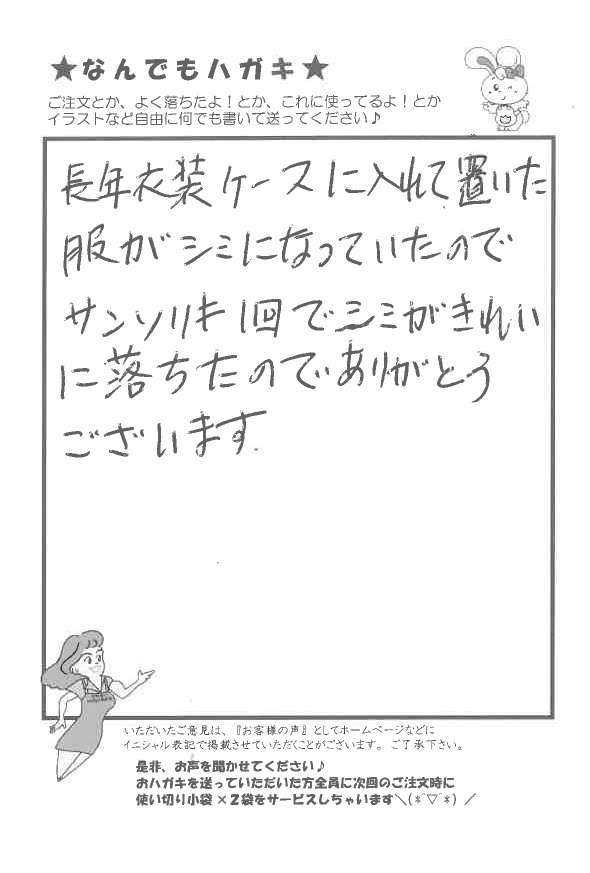 ★なんでもハガキ★
ご注文とか、よく落ちたよ！とか、これに使ってるよ！とか
イラストなど自由に何でも書いて送ってください♪
長年衣装ケースに入れて置いた
服がシミになっていたので
サンソリキ1回でシミがきれい
に落ちたのでありがとう
ございます.
いただいたご意見は、『お客様の声』としてホームページなどに
イニシャル表記で掲載させていただくことがございます。ご了承下さい。
是非、お声を聞かせてください♪
おハガキを送っていただいた方全員に次回のご注文時に
使い切り小袋×2袋をサービスしちゃいます＼(*^▽^*)／